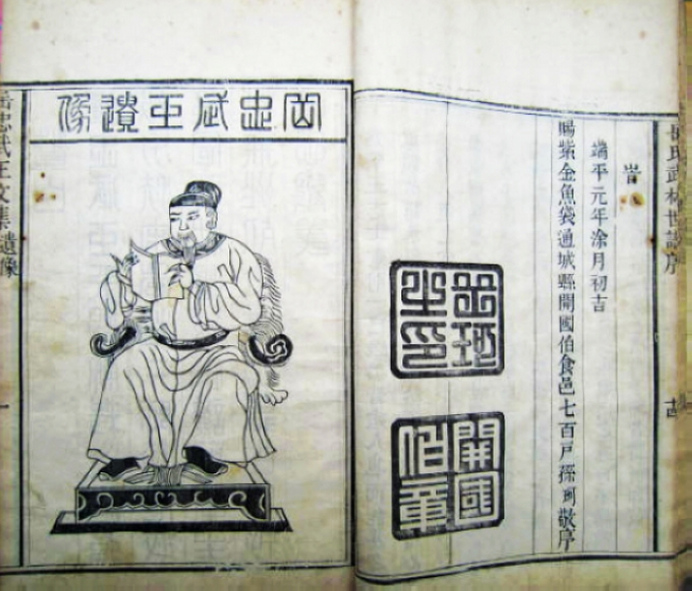 氏武林世譜序
旹
端平元年涂月初吉
賜紫金魚袋通城縣開國伯食邑七百戶孫珂敬序
岳珂之印
開國伯章
岳忠武王遺像
岳忠武王文集 遺像
一